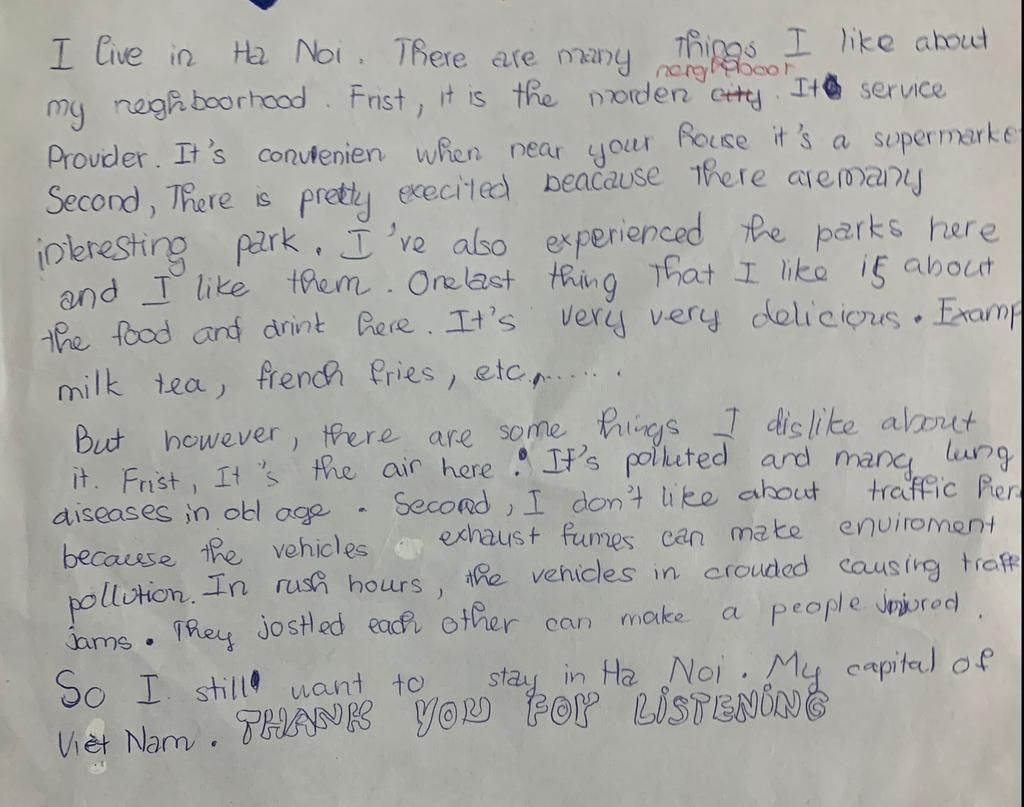 I live in Ha Noi. There are many things I like about
neighboor
my neighboorhood. Frist, it is the morden city. It service
Provider. It's convenien when near your house it's a supermarke
Second, There is pretty execited beacause there are many
interesting park. I've also experienced the parks here
and I like them. One last thing That I like is about
the food and drink here. It's very very delicious. Examp
milk tea, french fries, etc,......
But however, there are some things I dislike about
it. Frist, It's the air here : It's polluted and many lung
diseases in old age. Second, I don't like about traffic her
because the vehicles exhaust fumes can make enviroment
pollution. In rush hours, the vehicles in crouded causing traff
jams. They jostled each other can make a people injurod.
So I still want to stay in Ha Noi. My capital of
Việt Nam. THANK YOU FOR LISTENING